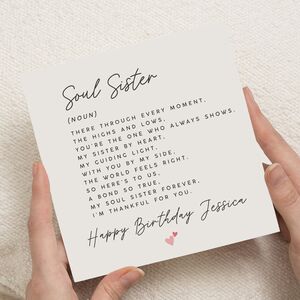 Soul Sister
(NOUN)
THERE THROUGH EVERY MOMENT,
THE HIGHS AND LOWS,
YOU'RE THE ONE WHO ALWAYS SHOWS.
MY SISTER BY HEART,
MY GUIDING LIGHT,
WITH YOU BY MY SIDE,
THE WORLD FEELS RIGHT.
SO HERE'S TO US,
A BOND SO TRUE,
MY SOUL SISTER FOREVER,
I'M THANKFUL FOR YOU.
Happy Birthday Jessica